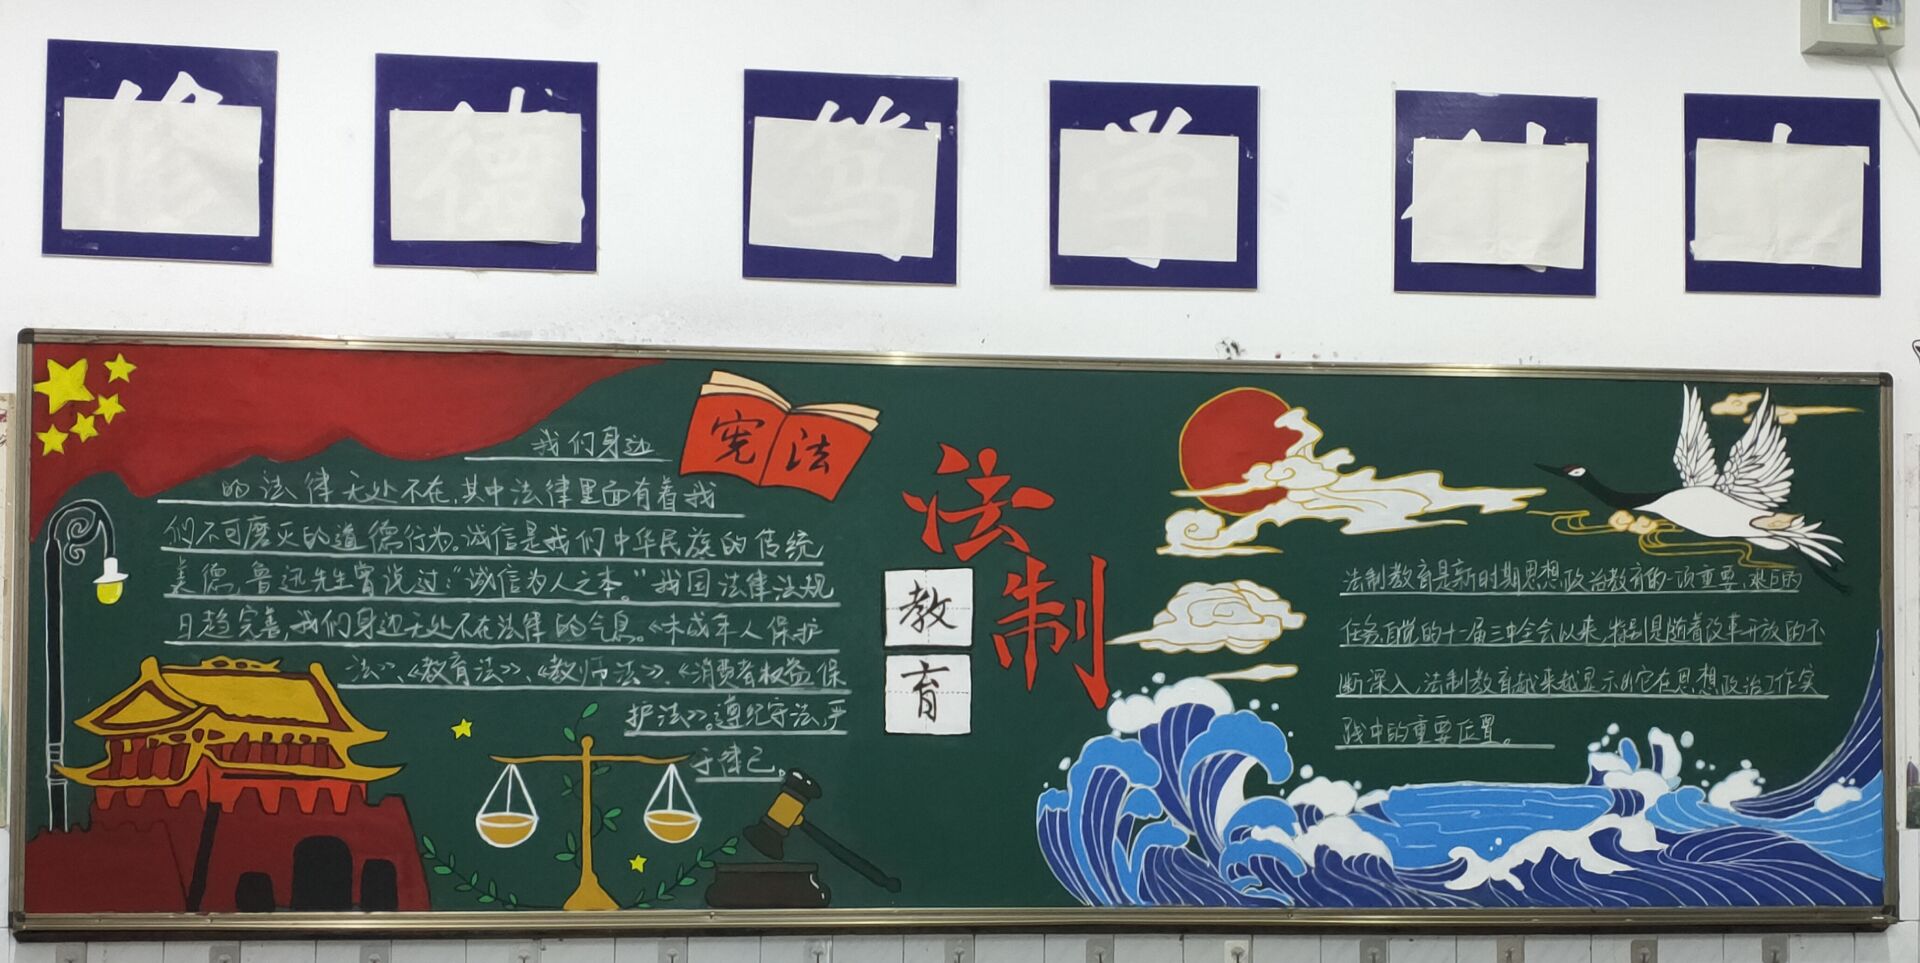 修
德
笃
学
宪法
我们身边
的法律无处不在,其中法律里面有着我
们不可磨灭的道德行为。诚信是我们中华民族的传统
美德,鲁迅先生曾说过:“诚信为人之本。”我国法律法规
日趋完善,我们身边无处不在法律的气息。《未成年人保护
法》、《教育法》、《教师法》、《消费者权益保
护法》。遵纪守法,严
于律己。
法制
教育
法制教育是新时期思想政治教育的一项重要,
任务,自党的十一届三中全会以来,特别是随着改革开放的不
断深入,法制教育越来越显示的它在思想政治工作实
践中的重要位置。